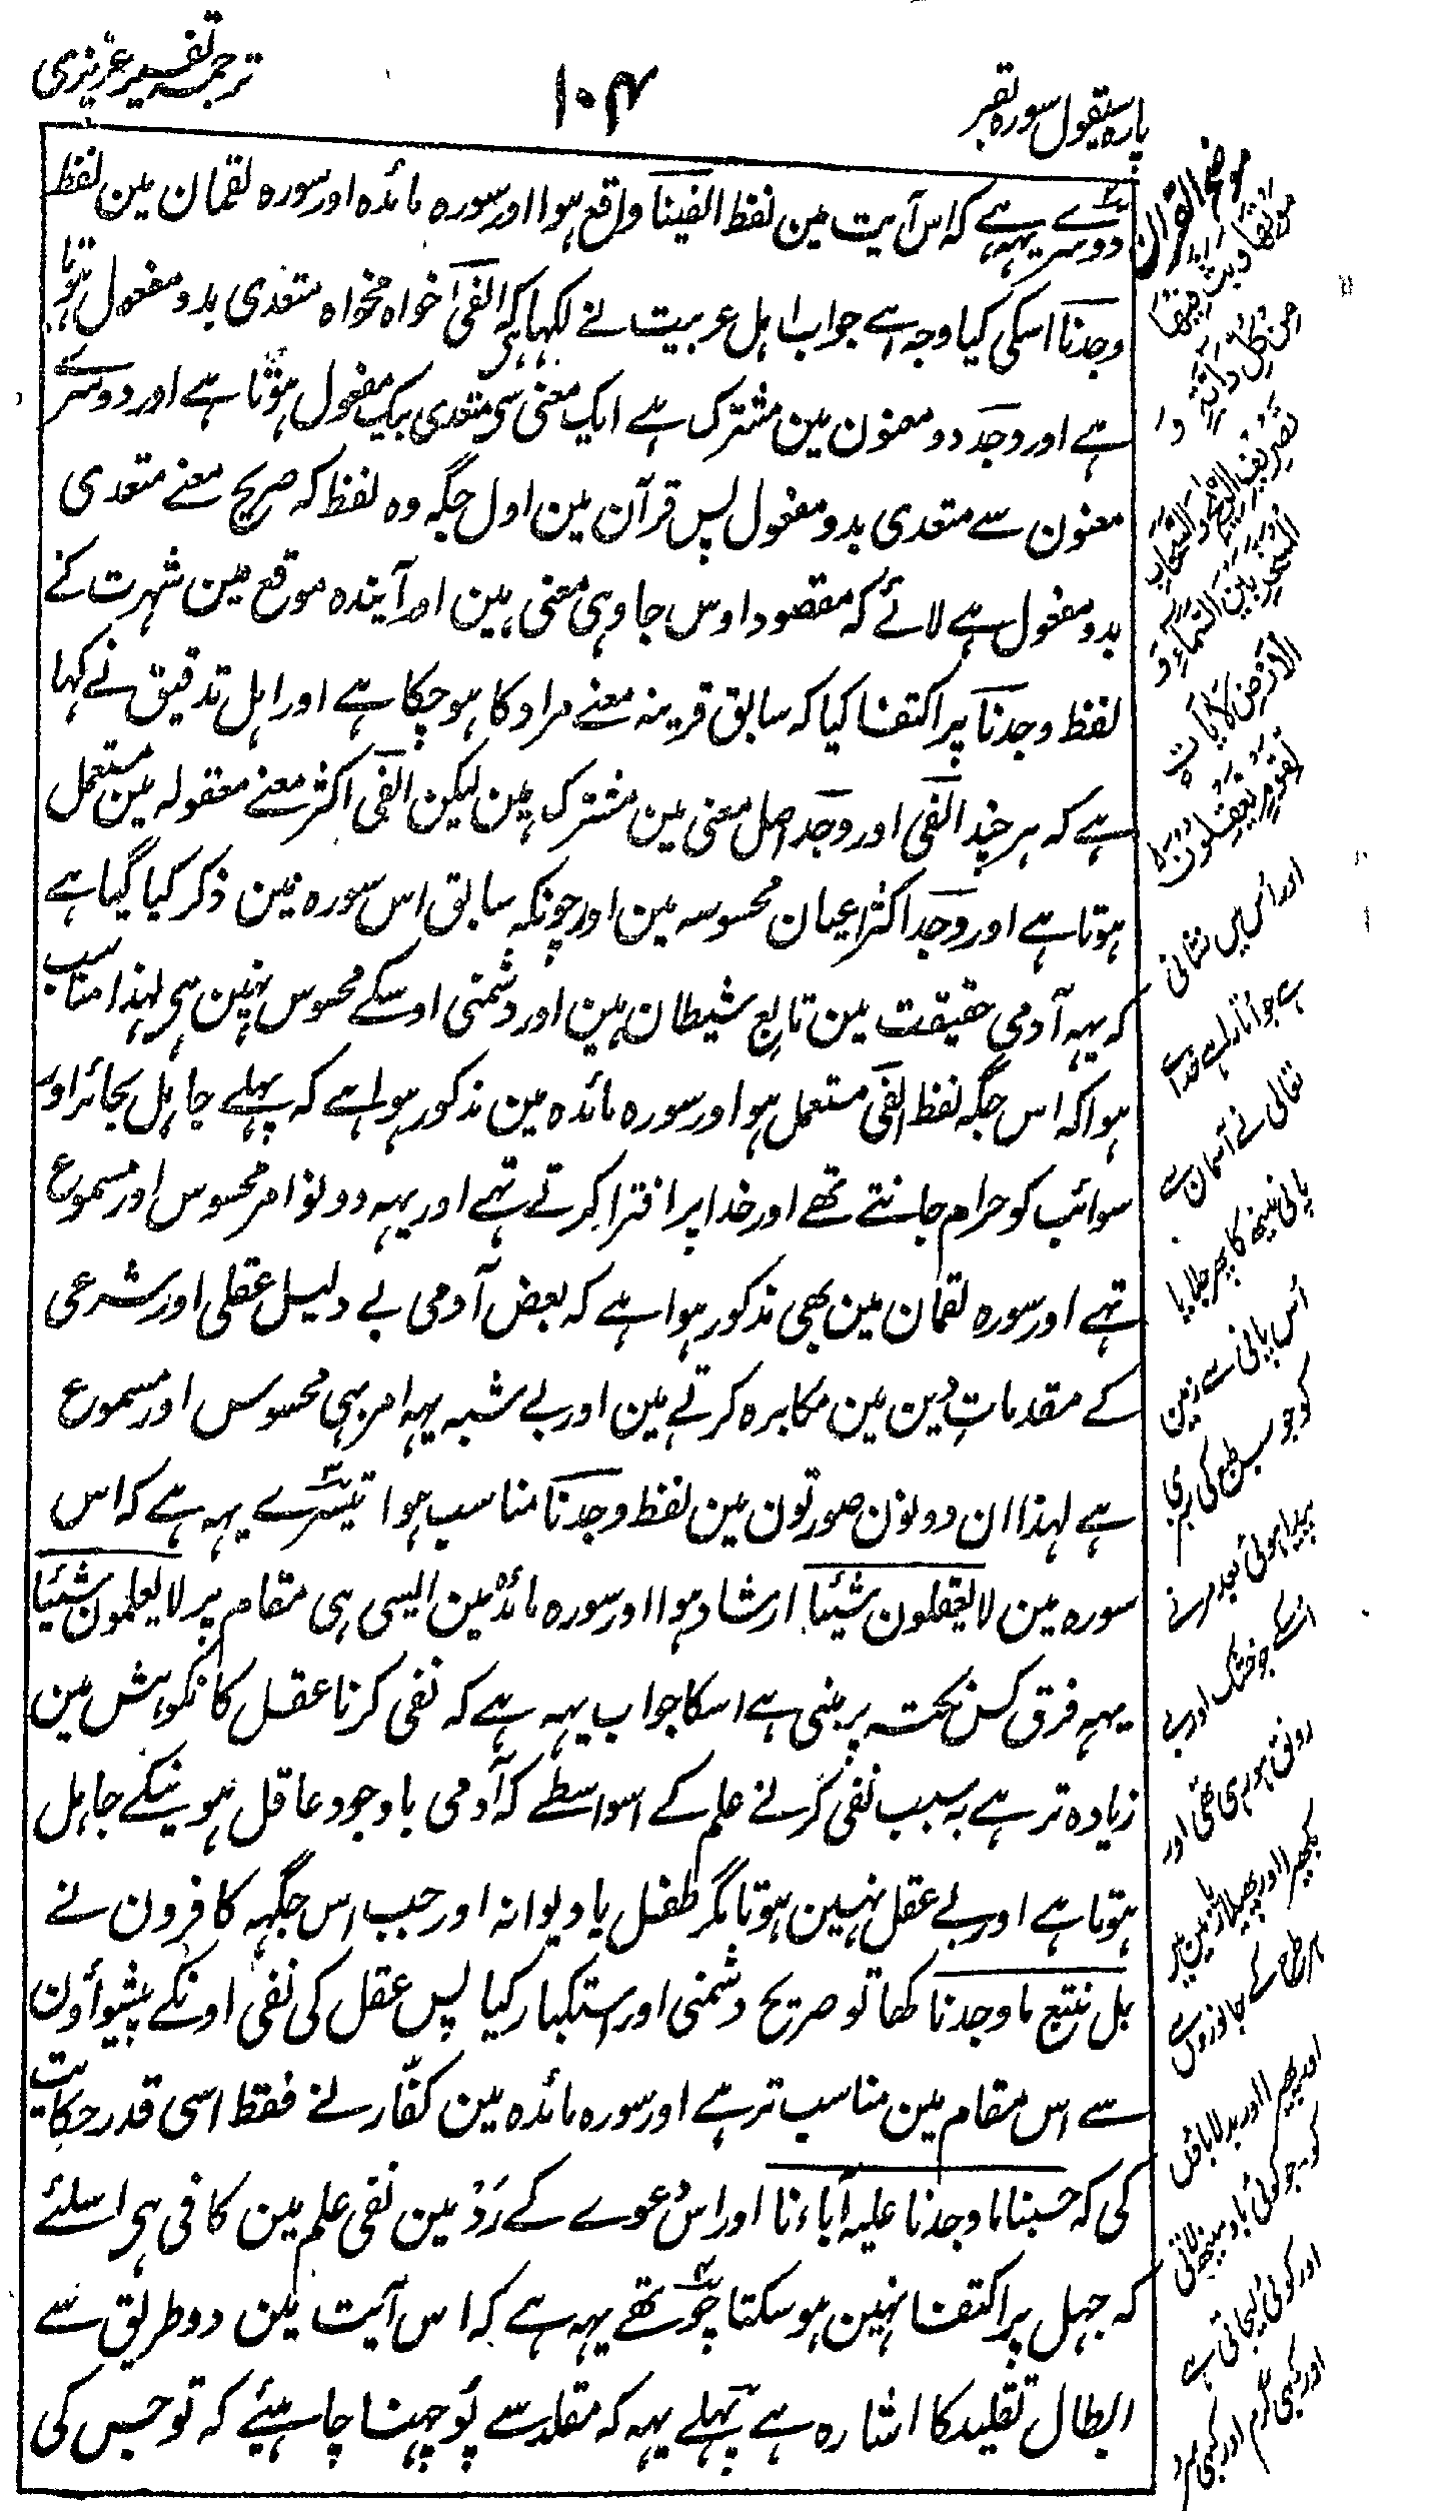 پارہ سیقول سورہ بقر
۱۰۴
ترجمہ تفسیر عزیزی
دوسرے یہہ ہے کہ اس آیت مین لفظ الفینا واقع ہوا اور سورہ مائدہ اور سورہ لقمان مین لفظ
وجدنا اسکی کیا وجہ ہے جواب اہل عربیت نے لکھا ہے کہ الفی خواہ مخواہ متعدی بدو مفعول ہوتا
ہے اور وجد دو معنون مین مشترک ہے ایک معنی سی متعدی بیک مفعول ہوتا ہے اور دوسرے
معنون سے متعدی بدو مفعول پس قرآن مین اول جگہ وہ لفظ کہ صریح معنے متعدی
بدو مفعول ہے لائے کہ مقصود اوس جا وہی معنی ہین اور آیندہ موقع مین شہرت کے
لفظ وجدنا پر اکتفا کیا کہ سابق قرینہ معنے مراد کا ہو چکا ہے اور اہل تدقیق نے کہا
ہے کہ ہر چند الفی اور وجد اصل معنی مین مشترک ہین لیکن الفی اکثر معنے معقولہ مین مستعمل
ہوتا ہے اور وجد اکثر اعیان محسوسہ مین اور چونکہ سابق اس سورہ مین ذکر کیا گیا ہے
کہ یہہ آدمی حقیقت مین تابع شیطان ہین اور دشمنی اوسکے محسوس نہین ہی لہذا مناسب
ہوا کہ اس جگہ لفظ الفی مستعمل ہو اور سورہ مائدہ مین مذکور ہوا ہے کہ پہلے جاہل بحائر اور
سوائب کو حرام جانتے تھے اور خدا پر افترا کرتے تہے اور یہہ دونو امر محسوس اور مسموع
تہے اور سورہ لقمان مین بھی مذکور ہوا ہے کہ بعض آدمی بے دلیل عقلی اور شرعی
کے مقدمات دین مین مکابرہ کرتے ہین اور بے شبہ یہہ امر بہی محسوس اور مسموع
ہے لہذا ان دونون صورتون مین لفظ وجدنا مناسب ہوا تیسرے یہہ ہے کہ اس
سورہ مین لا یعقلون شیئا ارشاد ہوا اور سورہ مائدہ مین ایسی ہی مقام پر لا یعلمون شیئا
یہہ فرق کس نکتہ پر مبنی ہے اسکا جواب یہہ ہے کہ نفی کرنا عقل کا نکوہش مین
زیادہ تر ہے بہ سبب نفی کرنے علم کے اسواسطے کہ آدمی باوجود عاقل ہونیکے جاہل
ہوتا ہے اور بے عقل نہین ہوتا مگر طفل یا دیوانہ اور جب اس جگہہ کافرون نے
بل نتبع ما وجدنا کھا تو صریح دشمنی اور استکبار کیا پس عقل کی نفی اونکے پیشواؤن
سے اس مقام مین مناسب تر ہے اور سورہ مائدہ مین کفّار نے فقط اسی قدر حکایت
کی کہ حسبنا ما وجدنا علیہ آباءنا اور اس دعوے کے رد مین نفی علم مین کافی ہی اسلئے
کہ جہل پر اکتفا نہین ہو سکتا چوتھے یہہ ہے کہ اس آیت مین دو طریق سے
ابطال تقلید کا اشارہ ہے پہلے یہہ کہ مقلد سے پوچہنا چاہیئے کہ تو جس کی
موضح القرآن
موتھا و بث فیھا
من کل دابۃ و
تصریف الریح والسحاب
المسخر بین السماء و
الارض لایات
لقوم یعقلون
اور اس میں نشانی
ہے جو اتارا ہے خدائے
تعالی نے آسمان سے
پانی مینھ کا پھر جلایا
اُس پانی سے زمین
کو جو سبزی کی بھری
پیدا ہوئی بعد مرنے
اسکے جو خشک اور بے
رونق ہو رہی تھی اور
بکھیرا اور پھیلایا زمین پر
ہر طرح کے جانوروں سے
اور پھیرا اور بدلا باؤں
کو جو کوئی باؤ مینھ لاتی
اور کوئی لیجاتی ہے
اور کبھی گرم اور کبھی سرد